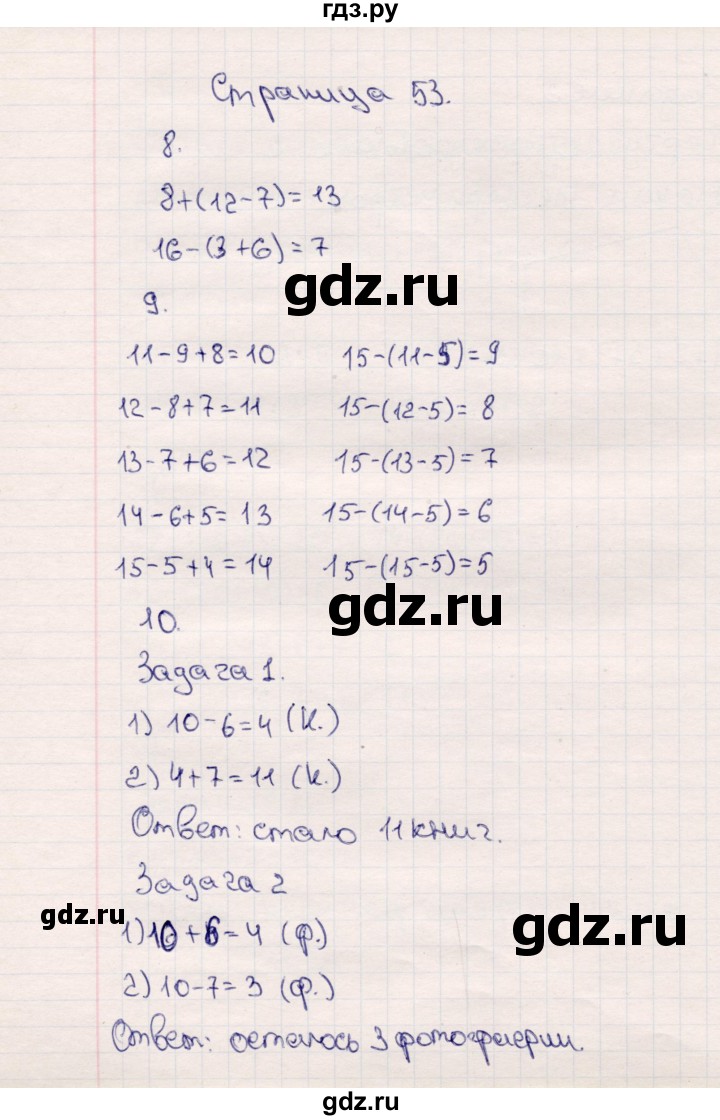 гдз.ру
Страница 53.
8.
8+(12-7)=13
16-(3+6)=7
gdz.ru
9.
11-9+8=10 15-(11-5)=9
12-8+7=11 15-(12-5)=8
13-7+6=12 15-(13-5)=7
14-6+5=13 15-(14-5)=6
15-5+4=14 15-(15-5)=5
gdz.ru
10.
Задача 1.
1) 10-6=4 (к.)
2) 4+7=11 (к.)
Ответ: стало 11 книг.
Задача 2
gdz.ru
gdz.ru
1) 10+6=4 (ф.)
2) 10-7=3 (ф.)
Ответ: осталось 3 фотографии.
gdz.ru